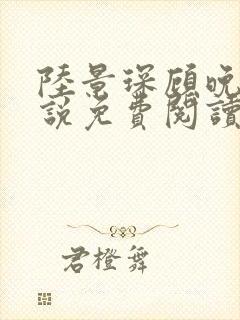 陸景琛顧晚
說免費閱讀
君橙舞